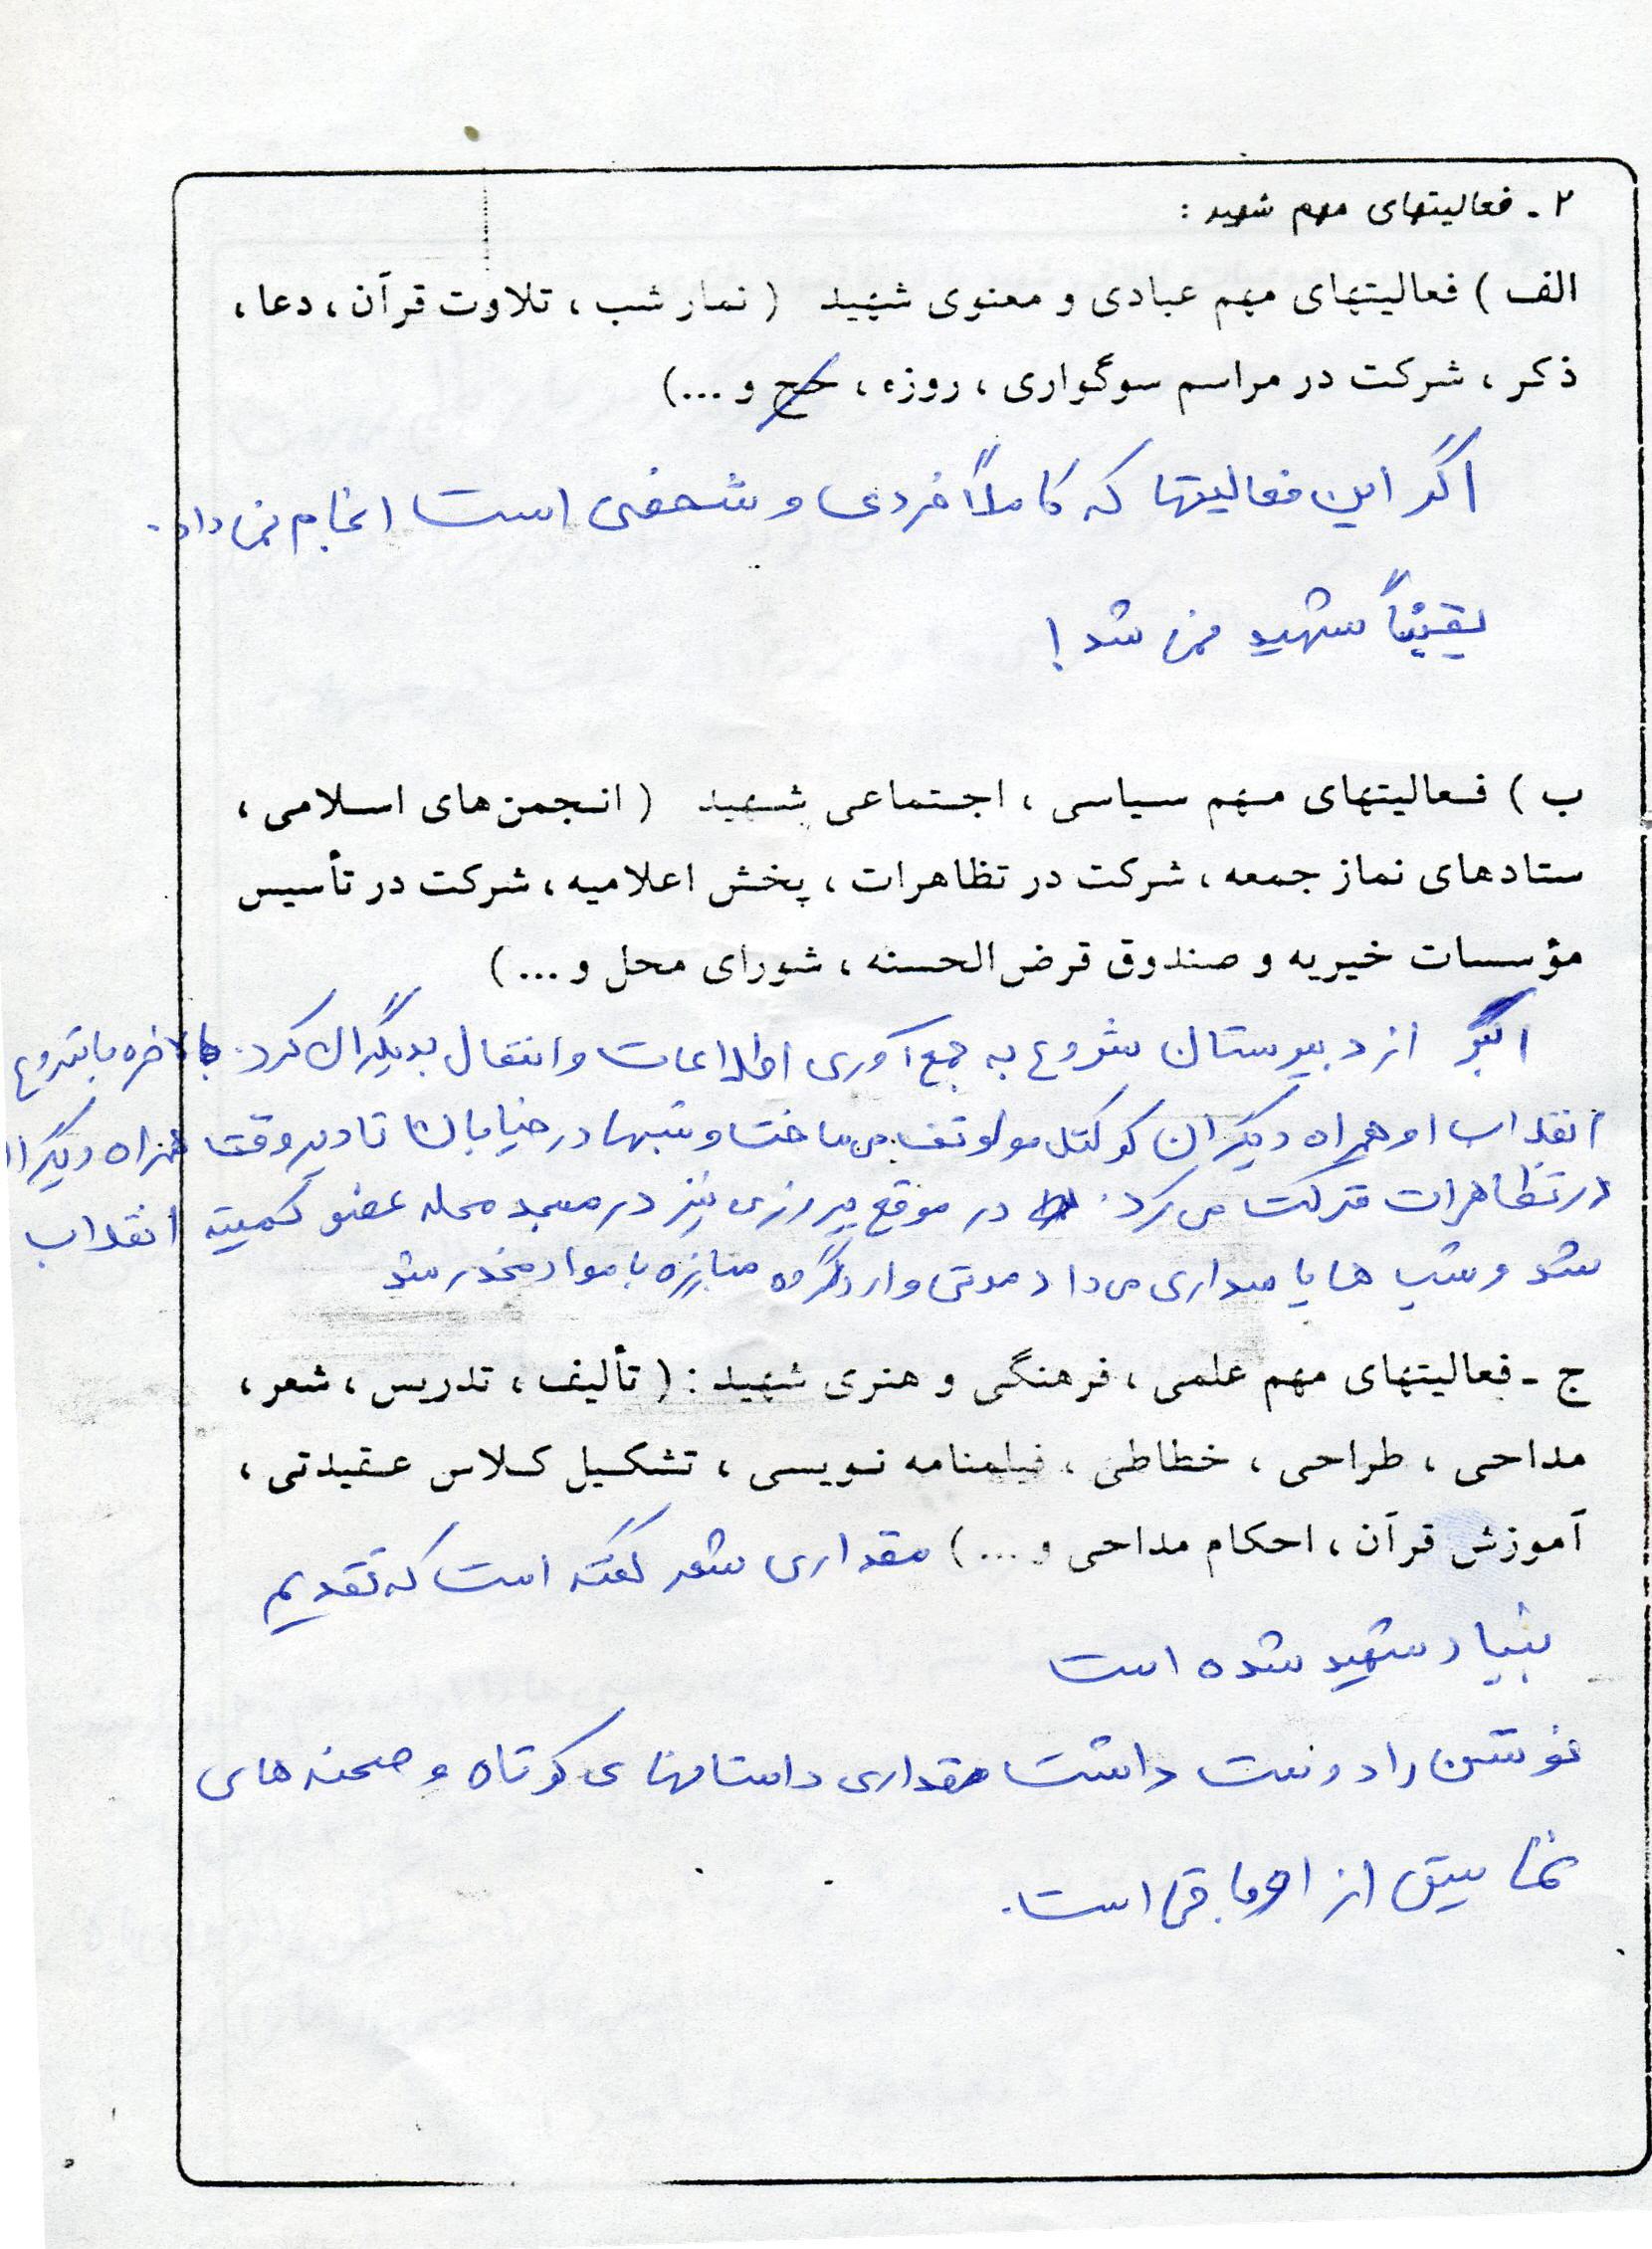 ۲ ـ فعالیتهای مهم شهید :
الف ) فعالیتهای مهم عبادی و معنوی شهید ( نماز شب ، تلاوت قرآن ، دعا ،
ذکر ، شرکت در مراسم سوگواری ، روزه ، حج و ...)
اگر این فعالیتها که کاملاً فردی و شخصی است انجام نمی داد.
یقیناً شهید نمی شد !
ب ) فعالیتهای مهم سیاسی ، اجتماعی شهید ( انجمن‌های اسلامی ،
ستادهای نماز جمعه ، شرکت در تظاهرات ، پخش اعلامیه ، شرکت در تأسیس
مؤسسات خیریه و صندوق قرض‌الحسنه ، شورای محل و ... )
از دبیرستان شروع به جمع آوری اطلاعات و انتقال بدیگران کرد. بالاخره با شروع
انقلاب او همراه دیگران کوکتل مولوتف می ساخت و شبها در خیابان تا دیر وقت همراه دیگران
در تظاهرات شرکت می کرد. در موقع پیروزی نیز در مسجد محله عضو کمیته انقلاب
شد و شب ها پاسداری می داد مدتی وارد گروه مبارزه با مواد مخدر شد
ج ـ فعالیتهای مهم علمی ، فرهنگی و هنری شهید : ( تألیف ، تدریس ، شعر ،
مداحی ، طراحی ، خطاطی ، فیلمنامه نویسی ، تشکیل کلاس عقیدتی ،
آموزش قرآن ، احکام مداحی و ... ) مقداری شعر گفته است که تقدیم
بنیاد شهید شده است
نوشتن را دوست داشت مقداری داستانهای کوتاه و صحنه های
نمایشی از او باقی است.